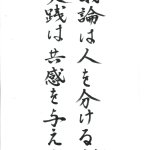 論は人を分ける
践は共感を与え